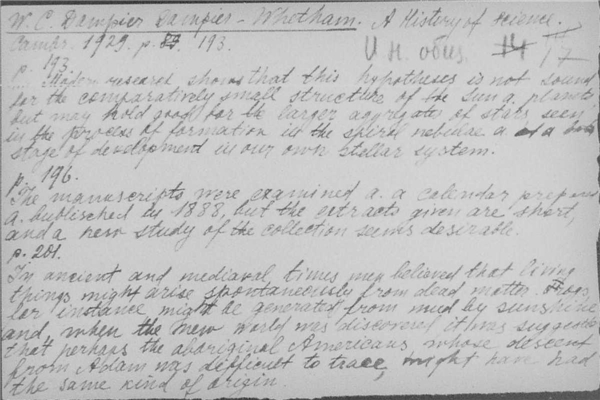 W. C. Dampier Dampier - Whetham. A History of science.
Cambr. 1929. p. 193.
И н. общ. 14 17
p. 193
... Modern research shows that this hypotheses is not sound
for the comparatively small structure of the sun a. planets
but may hold good for the larger aggregates of stars seen
in the process of formation in the spiral nebulae a. at a
stage of development in our own stellar system.
p. 196.
The manuscripts were examined a. a calendar prepared
a. published by 1888, but the extracts given are short,
and a new study of the collection seems desirable.
p. 201.
In ancient and mediaeval times men believed that living
things might arise spontaneously from dead matter. Frogs
for instance might be generated from mud by sunshine
and, when the new world was discovered it was suggested
that perhaps the aboriginal Americans, whose descent
from Adam was difficult to trace, might have had
the same kind of origin.